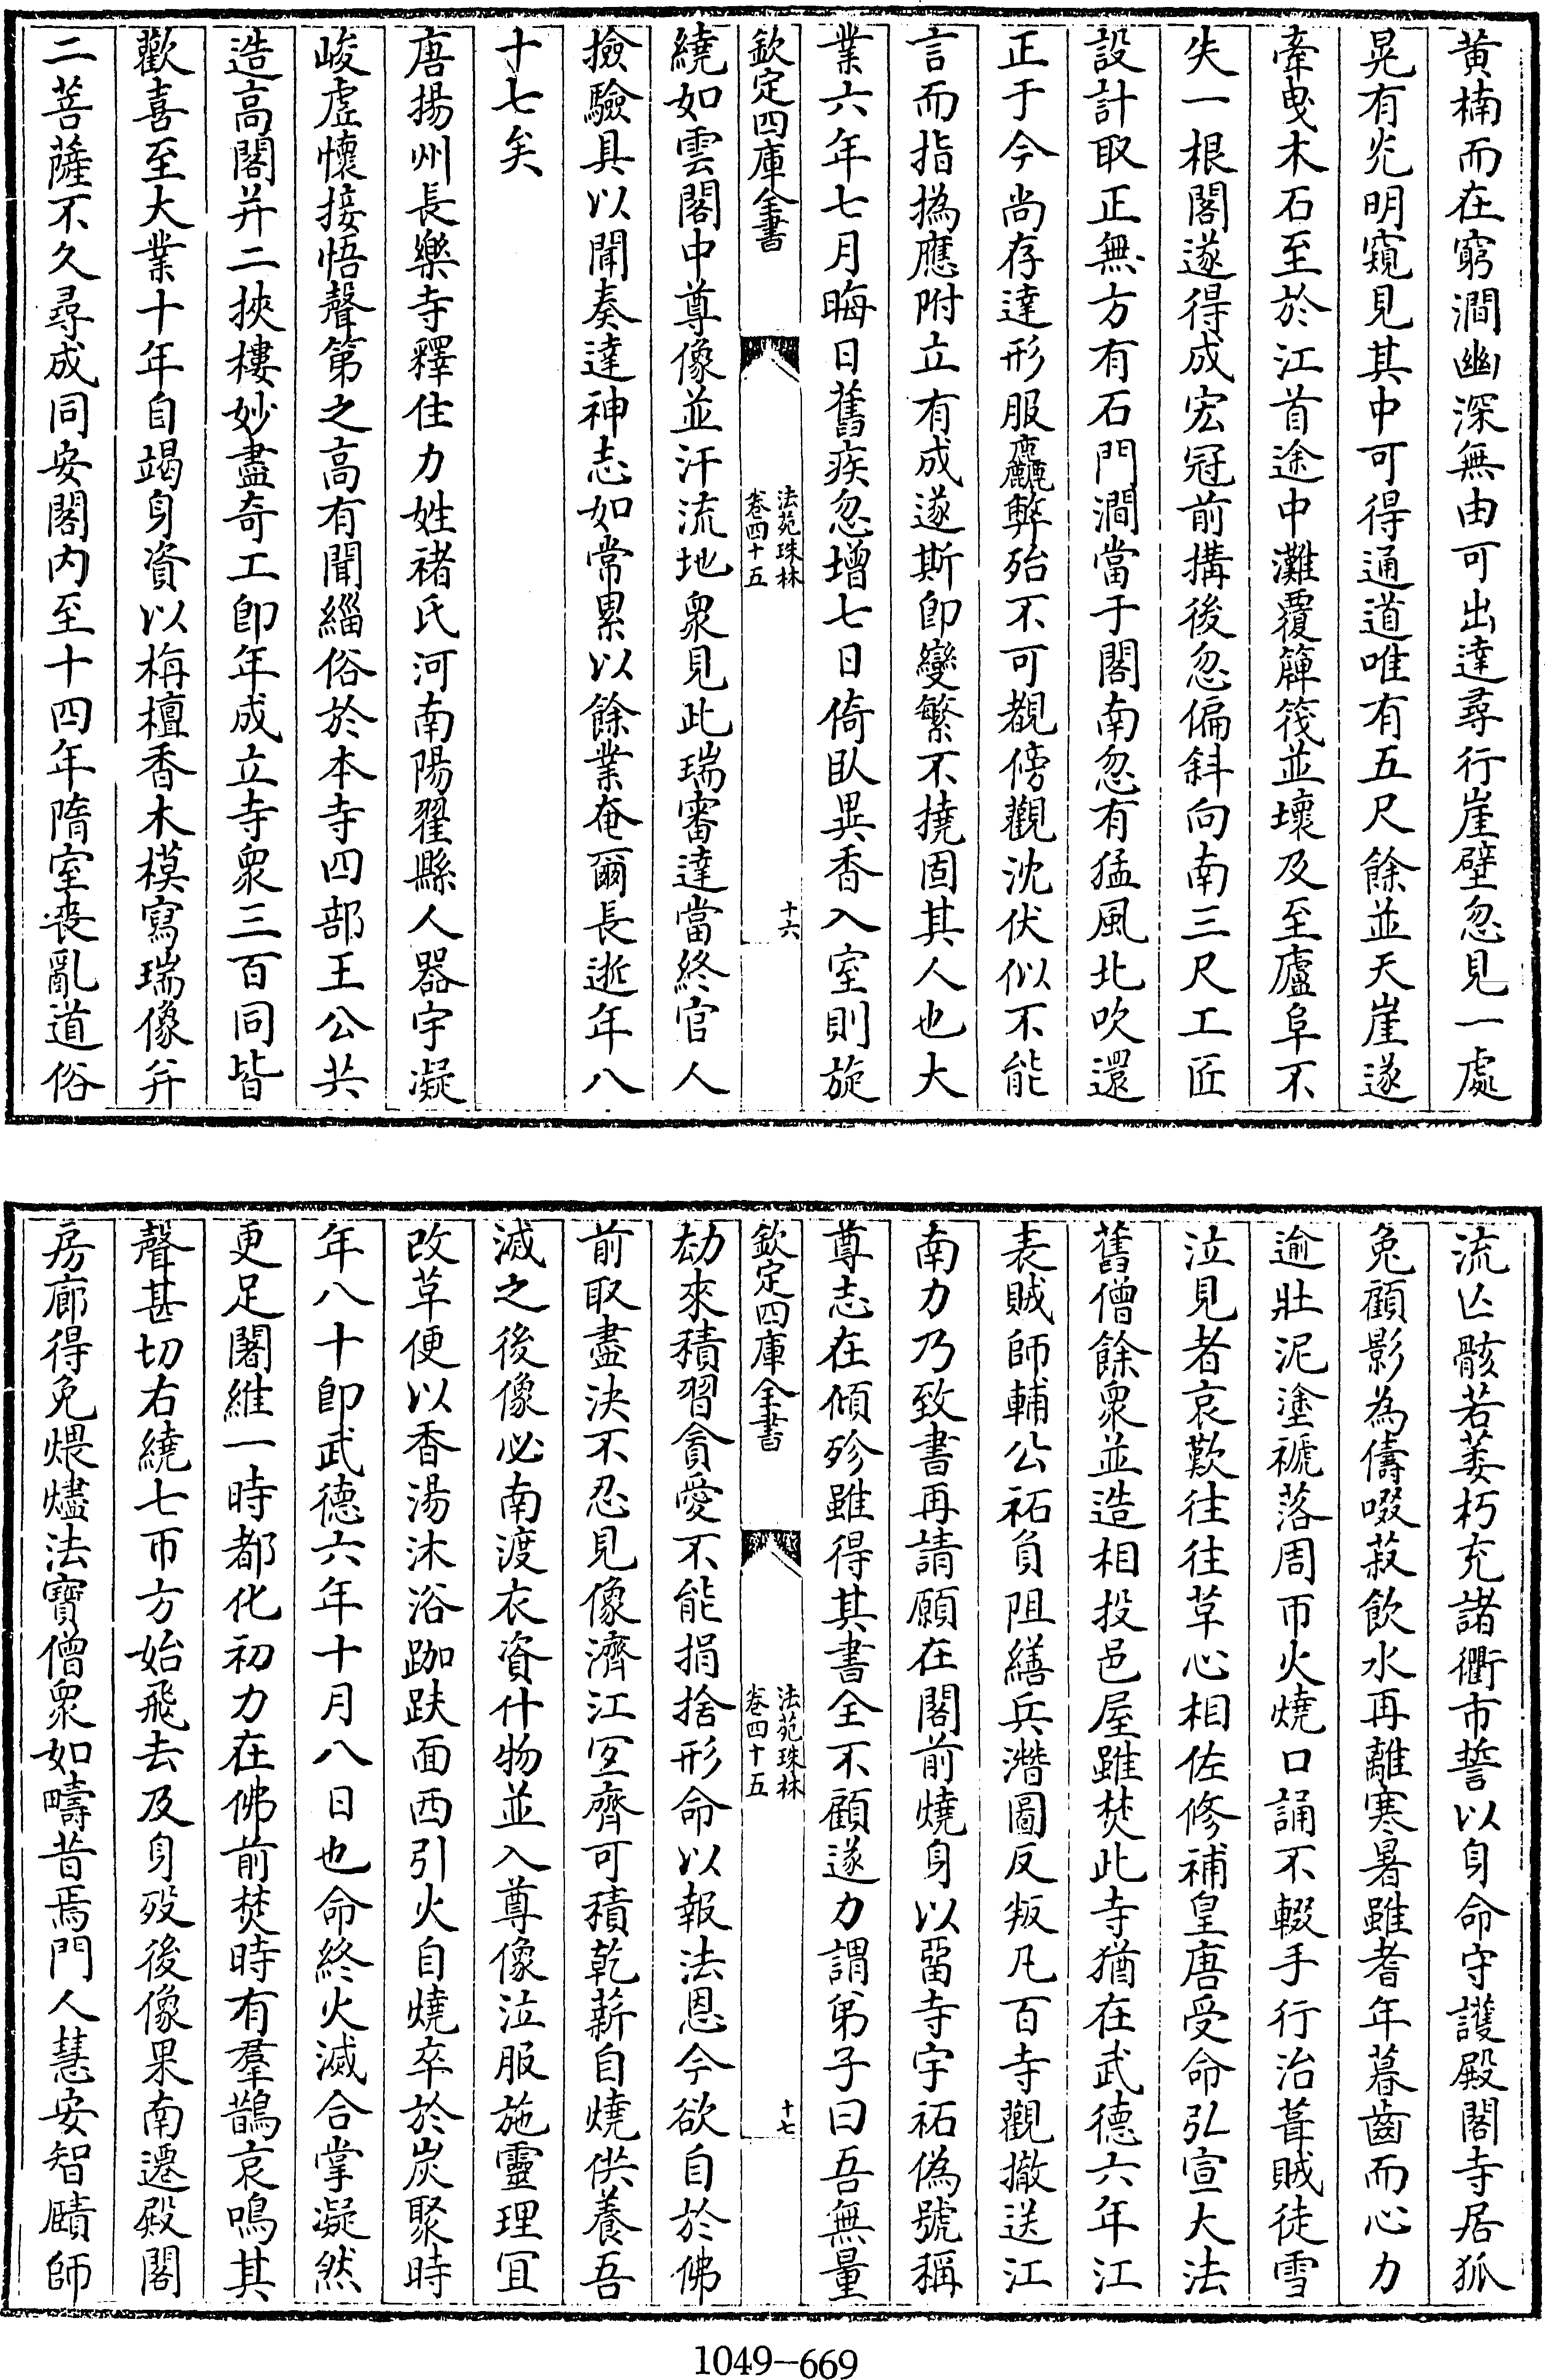 黄楠而在窮澗幽深無由可出達尋行崖壁忽見一處
晃有光明窺見其中可得通道唯有五尺餘並天崖遂
牽曳木石至於江首途中灘覆簰筏並壞及至廬阜不
失一根閣遂得成宏冠前搆後忽偏斜向南三尺工匠
設計取正無方有石門澗當于閣南忽有猛風北吹還
正于今尚存達形服麤弊殆不可覩傍觀沈伏似不能
言而指撝應附立有成遂斯即變繁不撓固其人也大
業六年七月晦日舊疾忽增七日倚卧異香入室則旋
欽定四庫全書
法苑珠林
卷四十五
十六
繞如雲閣中尊像並汗流地衆見此瑞審達當終官人
撿驗具以聞奏達神志如常累以餘業奄爾長逝年八
十七矣
唐揚州長樂寺釋住力姓褚氏河南陽翟縣人器宇凝
峻虚懷接悟聲第之高有聞緇俗於本寺四部王公共
造高閣并二挾樓妙盡奇工即年成立寺衆三百同皆
歡喜至大業十年自竭身資以栴檀香木模寫瑞像并
二菩薩不久尋成同安閣内至十四年隋室喪亂道俗
流亡骸若萎朽充諸衢市誓以身命守護殿閣寺居狐
兔顧影為儔啜菽飲水再離寒暑雖耆年暮齒而心力
逾壯泥塗褫落周帀火燒口誦不輟手行治葺賊徒雪
泣見者哀歎往往革心相佐修補皇唐受命弘宣大法
舊僧餘衆並造相投邑屋雖焚此寺猶在武德六年江
表賊師輔公祏負阻繕兵潛圖反叛凡百寺觀撤送江
南力乃致書再請願在閣前燒身以留寺宇祏偽號稱
尊志在傾殄雖得其書全不顧遂力謂弟子曰吾無量
欽定四庫全書
法苑珠林
卷四十五
十七
劫來積習貪愛不能捐捨形命以報法恩今欲自於佛
前取盡決不忍見像濟江宜齊可積乾薪自燒供養吾
滅之後像必南渡衣資什物並入尊像泣服施靈理宜
改革便以香湯沐浴跏趺面西引火自燒卒於炭聚時
年八十即武德六年十月八日也命終火滅合掌凝然
更足闍維一時都化初力在佛前焚時有羣鵲哀鳴其
聲甚切右繞七帀方始飛去及身殁後像果南遷殿閣
房廊得免煨燼法寶僧衆如疇昔焉門人慧安智賾師
1049-669